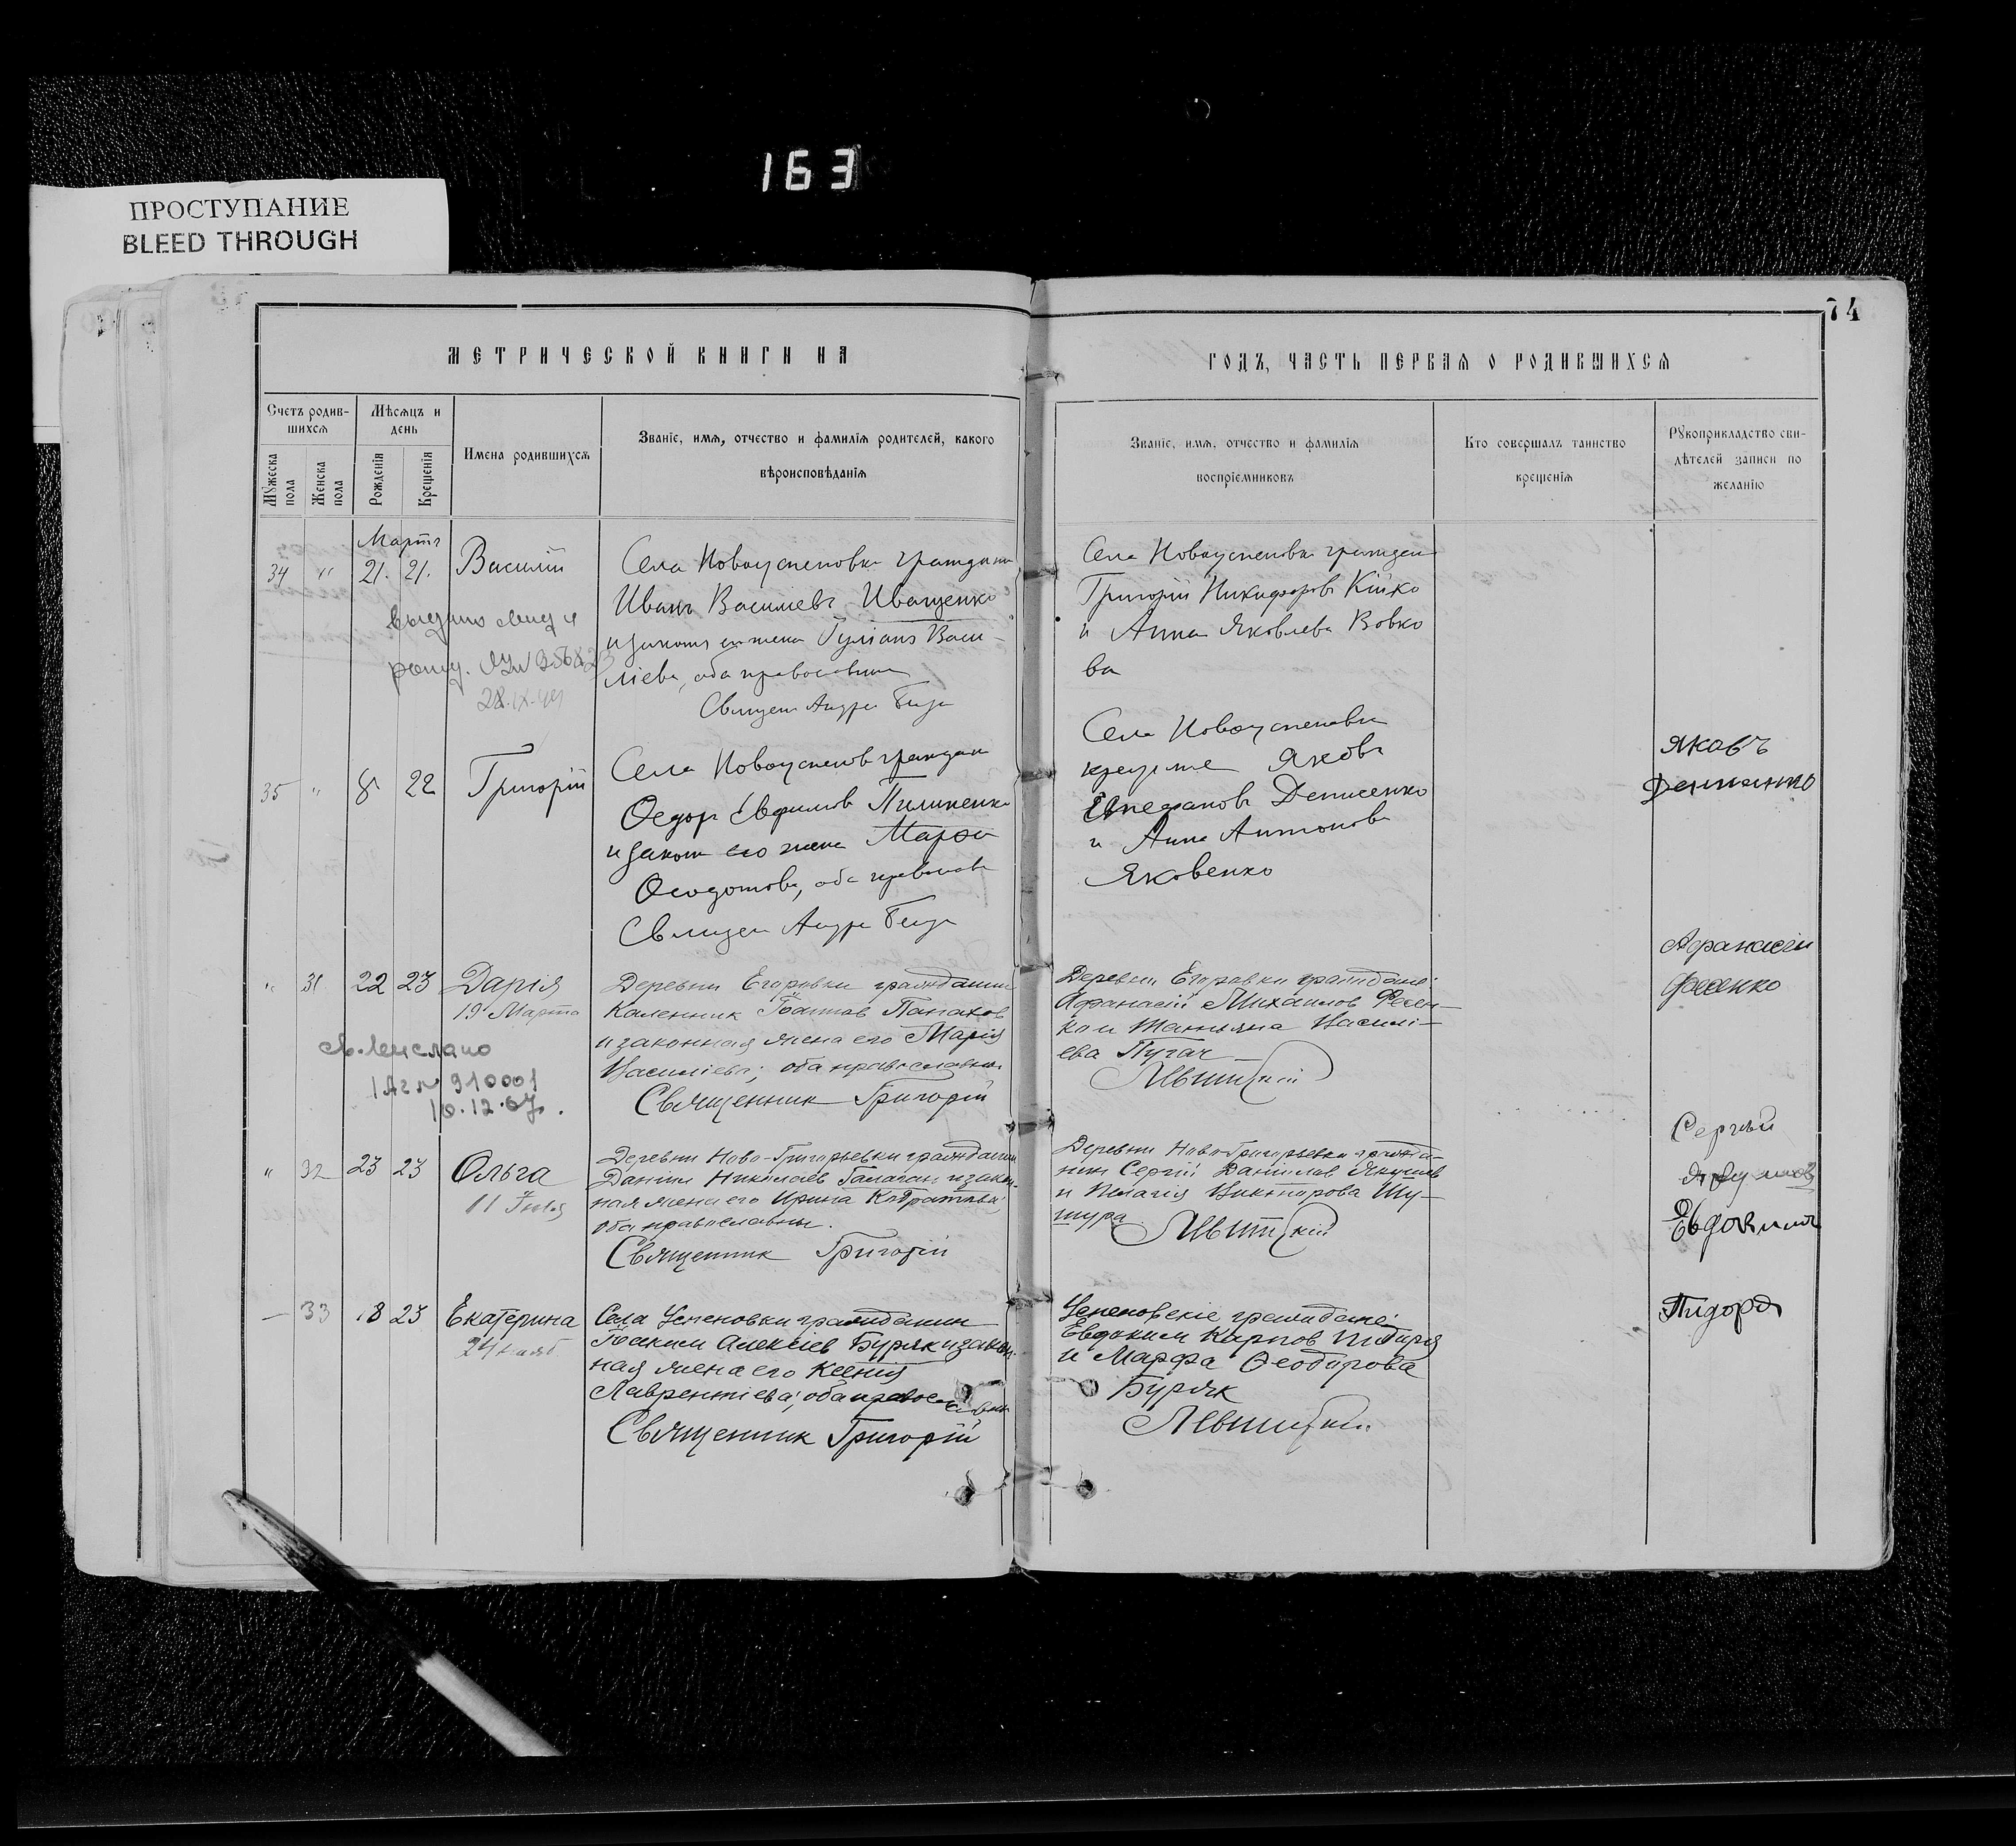 163
ПРОСТУПАНИЕ
BLEED THROUGH
74
МЕТРИЧЕСКОЙ КНИГИ НА
ГОДЪ, ЧАСТЬ ПЕРВАЯ О РОДИВШИХСЯ
Счетъ родив-
шихся
Мужеска
пола
Женска
пола
Мѣсяцъ и
день
Рожденія
Крещенія
Имена родившихся
Званіе, имя, отчество и фамилія родителей, какого
вѣроисповѣданія
Званіе, имя, отчество и фамилія
воспріемниковъ
Кто совершалъ таинство
крещенія
Рукоприкладство сви-
дѣтелей записи по
желанію
Марта
34 " 21. 21. Василій
Села Новоуспеновки
Иванъ Василіевъ Иващенко
и жена Василіева, оба
28.IX.49
Села Новоуспеновки
Григорій Никифоровъ Кійко
и Анна Яковлева Вовко
ва
35 " 8 22 Григорій
Села Новоуспенов
Ѳедор Евфимов Пилипенко
и закон его жена Марѳа
Ѳеодотова, оба
Села Новоуспеновки
Яковъ
Денисенко
и Анна Антонова
Яковенко
Яковъ
" 31 22 23 Дарія
19 Марта
16.12.67
Деревни Егоровки гражданин
Каленник
и законная жена его Марія
Василіева; оба православны.
Священник Григорій
Деревни Егоровки граждане
Афанасій Михаилов Фесен-
ко и Татьяна Василі-
ева Пугач
Левитскій
Афанасій
Фесенко
" 32 23 23 Ольга
11 Іюля
Деревни Ново-Григорьевки гражданин
Даниил Николаев Галаган и закон-
ная жена его Ирина
оба православны.
Священник Григорій
Деревни Ново-Григорьевки гражда-
нин Сергій Даниилов Якушев
и Пелагія Викторова Шу-
шура
Левитскій
Сергѣй
— 33 18 23 Екатерина
Села Успеновки гражданин
Іоаким Алексіев Буряк и закон-
ная жена его Ксенія
Лаврентіева; оба православны
Священник Григорій
Успеновскіе граждане
Евдоким Карпов
и Марфа Ѳеодорова
Буряк
Левитскій
Евдоким
Пидоря